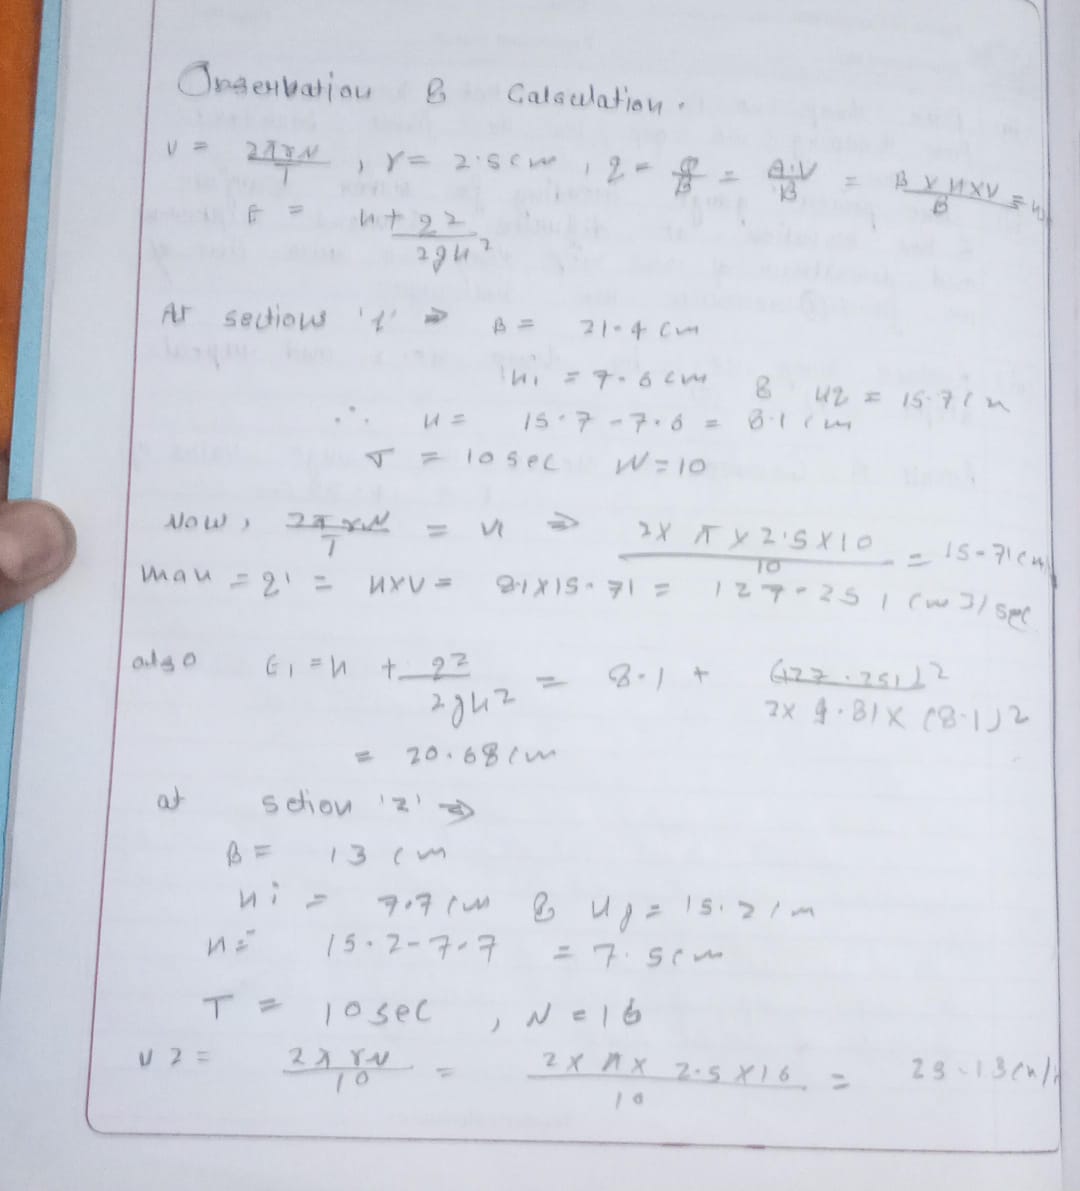 Observation & Calculation.
V = 2πrN/T , r = 2.5cm , q = Q/B = A.V/B = B x h x v/B =
E = h + q2/2gh2
At sections '1' ⇒ B = 21.4 cm
hi = 7.6cm & h2 = 15.7cm
∴ h = 15.7 - 7.6 = 8.1cm
T = 10 sec N = 10
Now, 2πrN/T = v1 ⇒ 2 x π x 2.5 x 10/10 = 15.71cm
q1 = h x v = 8.1 x 15.71 = 127.251 cm3/sec
also E1 = h + q2/2gh2 = 8.1 + (127.251)2/2 x 9.81 x (8.1)2
= 20.68cm
at setion '2' ⇒
B = 13 cm
hi = 7.7cm & hf = 15.2cm
h = 15.2 - 7.7 = 7.5cm
T = 10sec , N = 16
v2 = 2πrN/10 = 2 x π x 2.5 x 16/10 = 25.13cm/